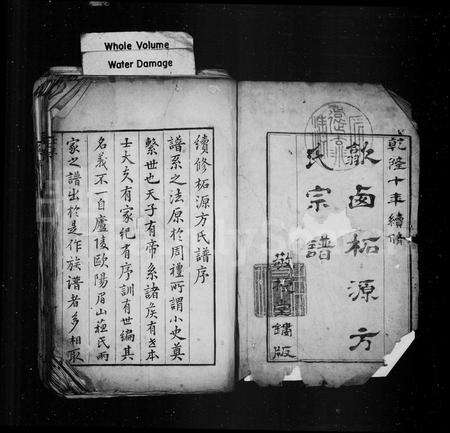 Whole Volume
Water Damage
乾隆十年續脩
歙南柘源方
氏宗譜
敬 堂鐫版
續修柘源方氏譜序
譜系之法原於周禮所謂小史奠
繫世也天子有帝系諸矦有世本
士大夫有家紀有序訓有世編其
名義不一自廬陵歐陽眉山蘇氏兩
家之譜出於是作族譜者多相取